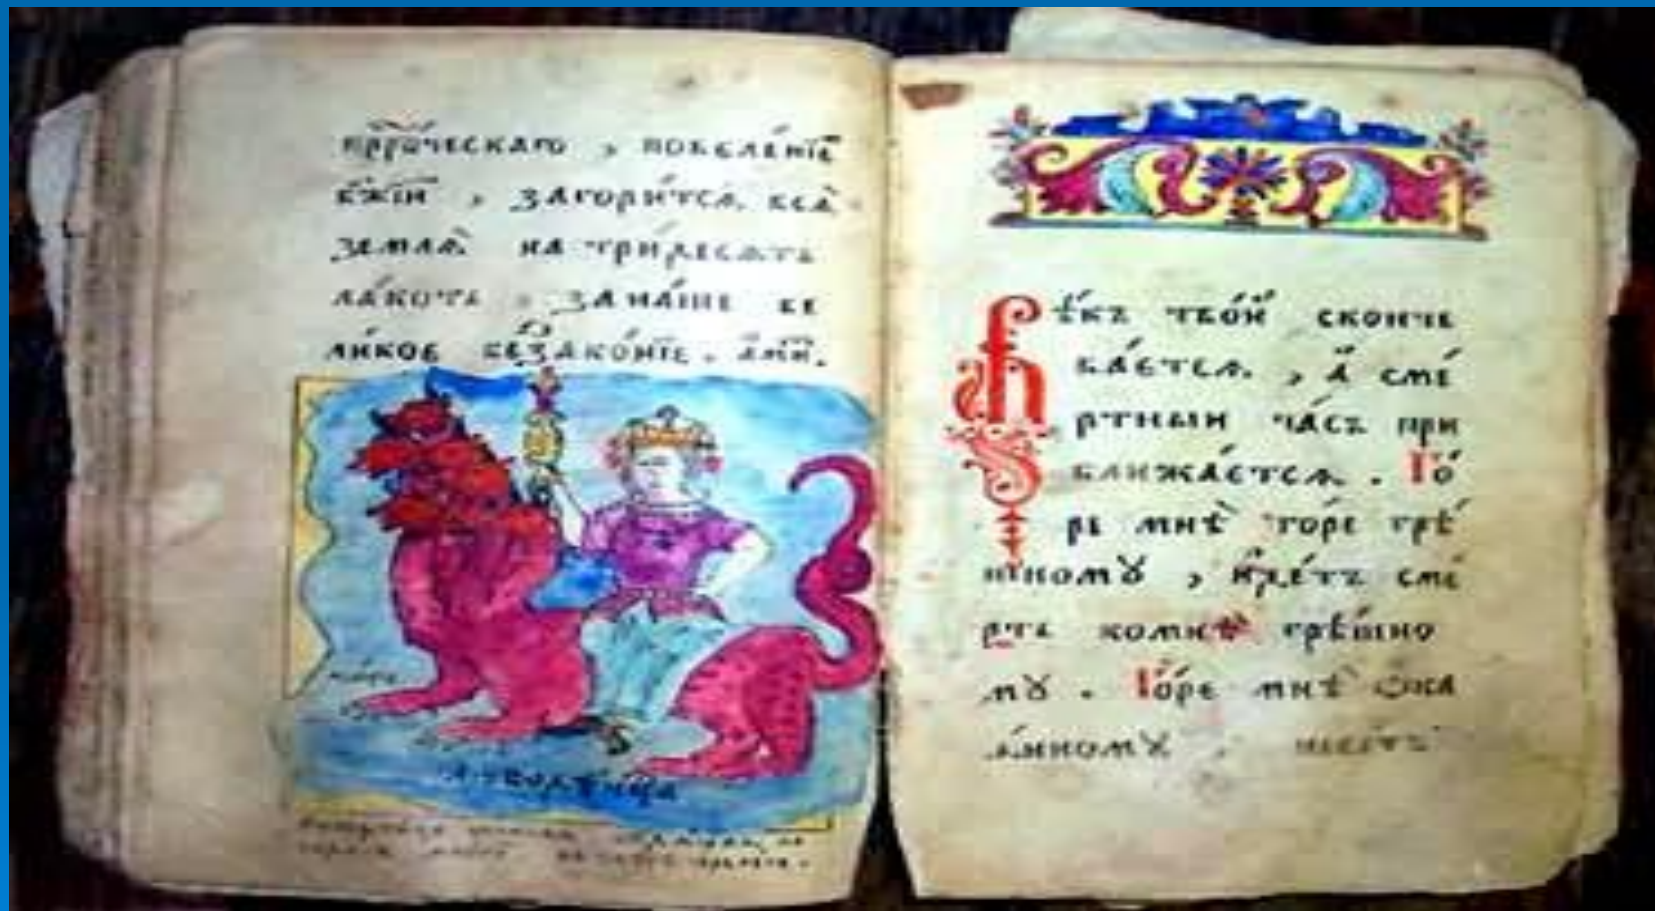 прⷪ҇рческаго , повелѣнїе
бж҃їи , загори́тсѧ всѧ̀
землѧ̀ на три́десѧть
ла́коть , за на́ше ве
ли́кое беззако́нїе . а҆ми́н .
любодѣ́ица
Вѣ́къ тво́й сконче
ва́етсѧ , а҆ сме́
ртный ча́съ при
ближа́етсѧ . Го́
ре мнѣ̀ го́ре грѣ́
шномꙋ , и҆де́тъ сме́
рть комнѣ̀ грѣ́шно
мꙋ . Го́ре мнѣ̀ ѻ҆ка
ѧ́нномꙋ .